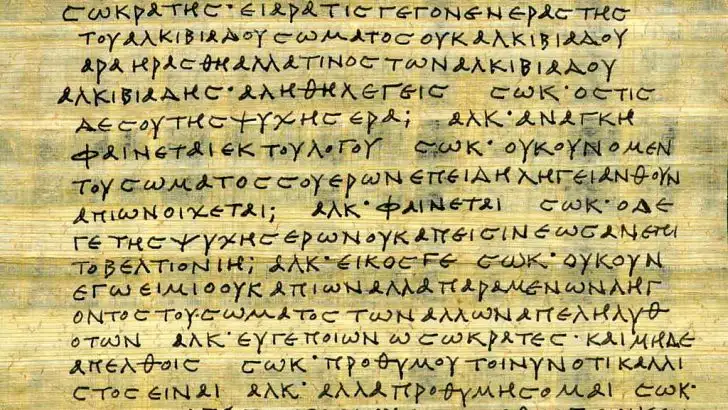 ϹΩΚΡΑΤΗϹ· ΕΙ ΑΡΑ ΤΙϹ ΓΕΓΟΝΕΝ ΕΡΑϹΤΗϹ
ΤΟΥ ΑΛΚΙΒΙΑΔΟΥ ϹΩΜΑΤΟϹ ΟΥΚ ΑΛΚΙΒΙΑΔΟΥ
ΑΡΑ ΗΡΑϹΘΗ ΑΛΛΑ ΤΙΝΟϹ ΤΩΝ ΑΛΚΙΒΙΑΔΟΥ
ΑΛΚΙΒΙΑΔΗϹ· ΑΛΗΘΗ ΛΕΓΕΙϹ ϹΩΚ· ΟϹΤΙϹ
ΔΕ ϹΟΥ ΤΗϹ ΨΥΧΗϹ ΕΡΑ; ΑΛΚ· ΑΝΑΓΚΗ
ΦΑΙΝΕΤΑΙ ΕΚ ΤΟΥ ΛΟΓΟΥ ϹΩΚ· ΟΥΚΟΥΝ Ο ΜΕΝ
ΤΟΥ ϹΩΜΑΤΟϹ ϹΟΥ ΕΡΩΝ ΕΠΕΙΔΗ ΛΗΓΕΙ ΑΝΘΟΥΝ
ΑΠΙΩΝ ΟΙΧΕΤΑΙ; ΑΛΚ· ΦΑΙΝΕΤΑΙ ϹΩΚ· Ο ΔΕ
ΓΕ ΤΗϹ ΨΥΧΗϹ ΕΡΩΝ ΟΥΚ ΑΠΕΙϹΙΝ ΕΩϹ ΑΝ ΕΠΙ
ΤΟ ΒΕΛΤΙΟΝ ΙΗ; ΑΛΚ· ΕΙΚΟϹ ΓΕ ϹΩΚ· ΟΥΚΟΥΝ
ΕΓΩ ΕΙΜΙ Ο ΟΥΚ ΑΠΙΩΝ ΑΛΛΑ ΠΑΡΑΜΕΝΩΝ ΛΗΓ
ΟΝΤΟϹ ΤΟΥ ϹΩΜΑΤΟϹ ΤΩΝ ΑΛΛΩΝ ΑΠΕΛΗΛΥΘ
ΟΤΩΝ ΑΛΚ· ΕΥ ΓΕ ΠΟΙΩΝ Ω ϹΩΚΡΑΤΕϹ· ΚΑΙ ΜΗΔΕ
ΑΠΕΛΘΟΙϹ ϹΩΚ· ΠΡΟΘΥΜΟΥ ΤΟΙΝΥΝ ΟΤΙ ΚΑΛΛΙ
ϹΤΟϹ ΕΙΝΑΙ ΑΛΚ· ΑΛΛΑ ΠΡΟΘΥΜΗϹΟΜΑΙ ϹΩΚ·